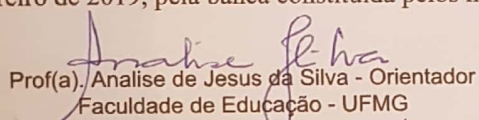 de 2019, pela banca constituída pelos
Analise Silva
Prof(a). Analise de Jesus da Silva - Orientador
Faculdade de Educação - UFMG